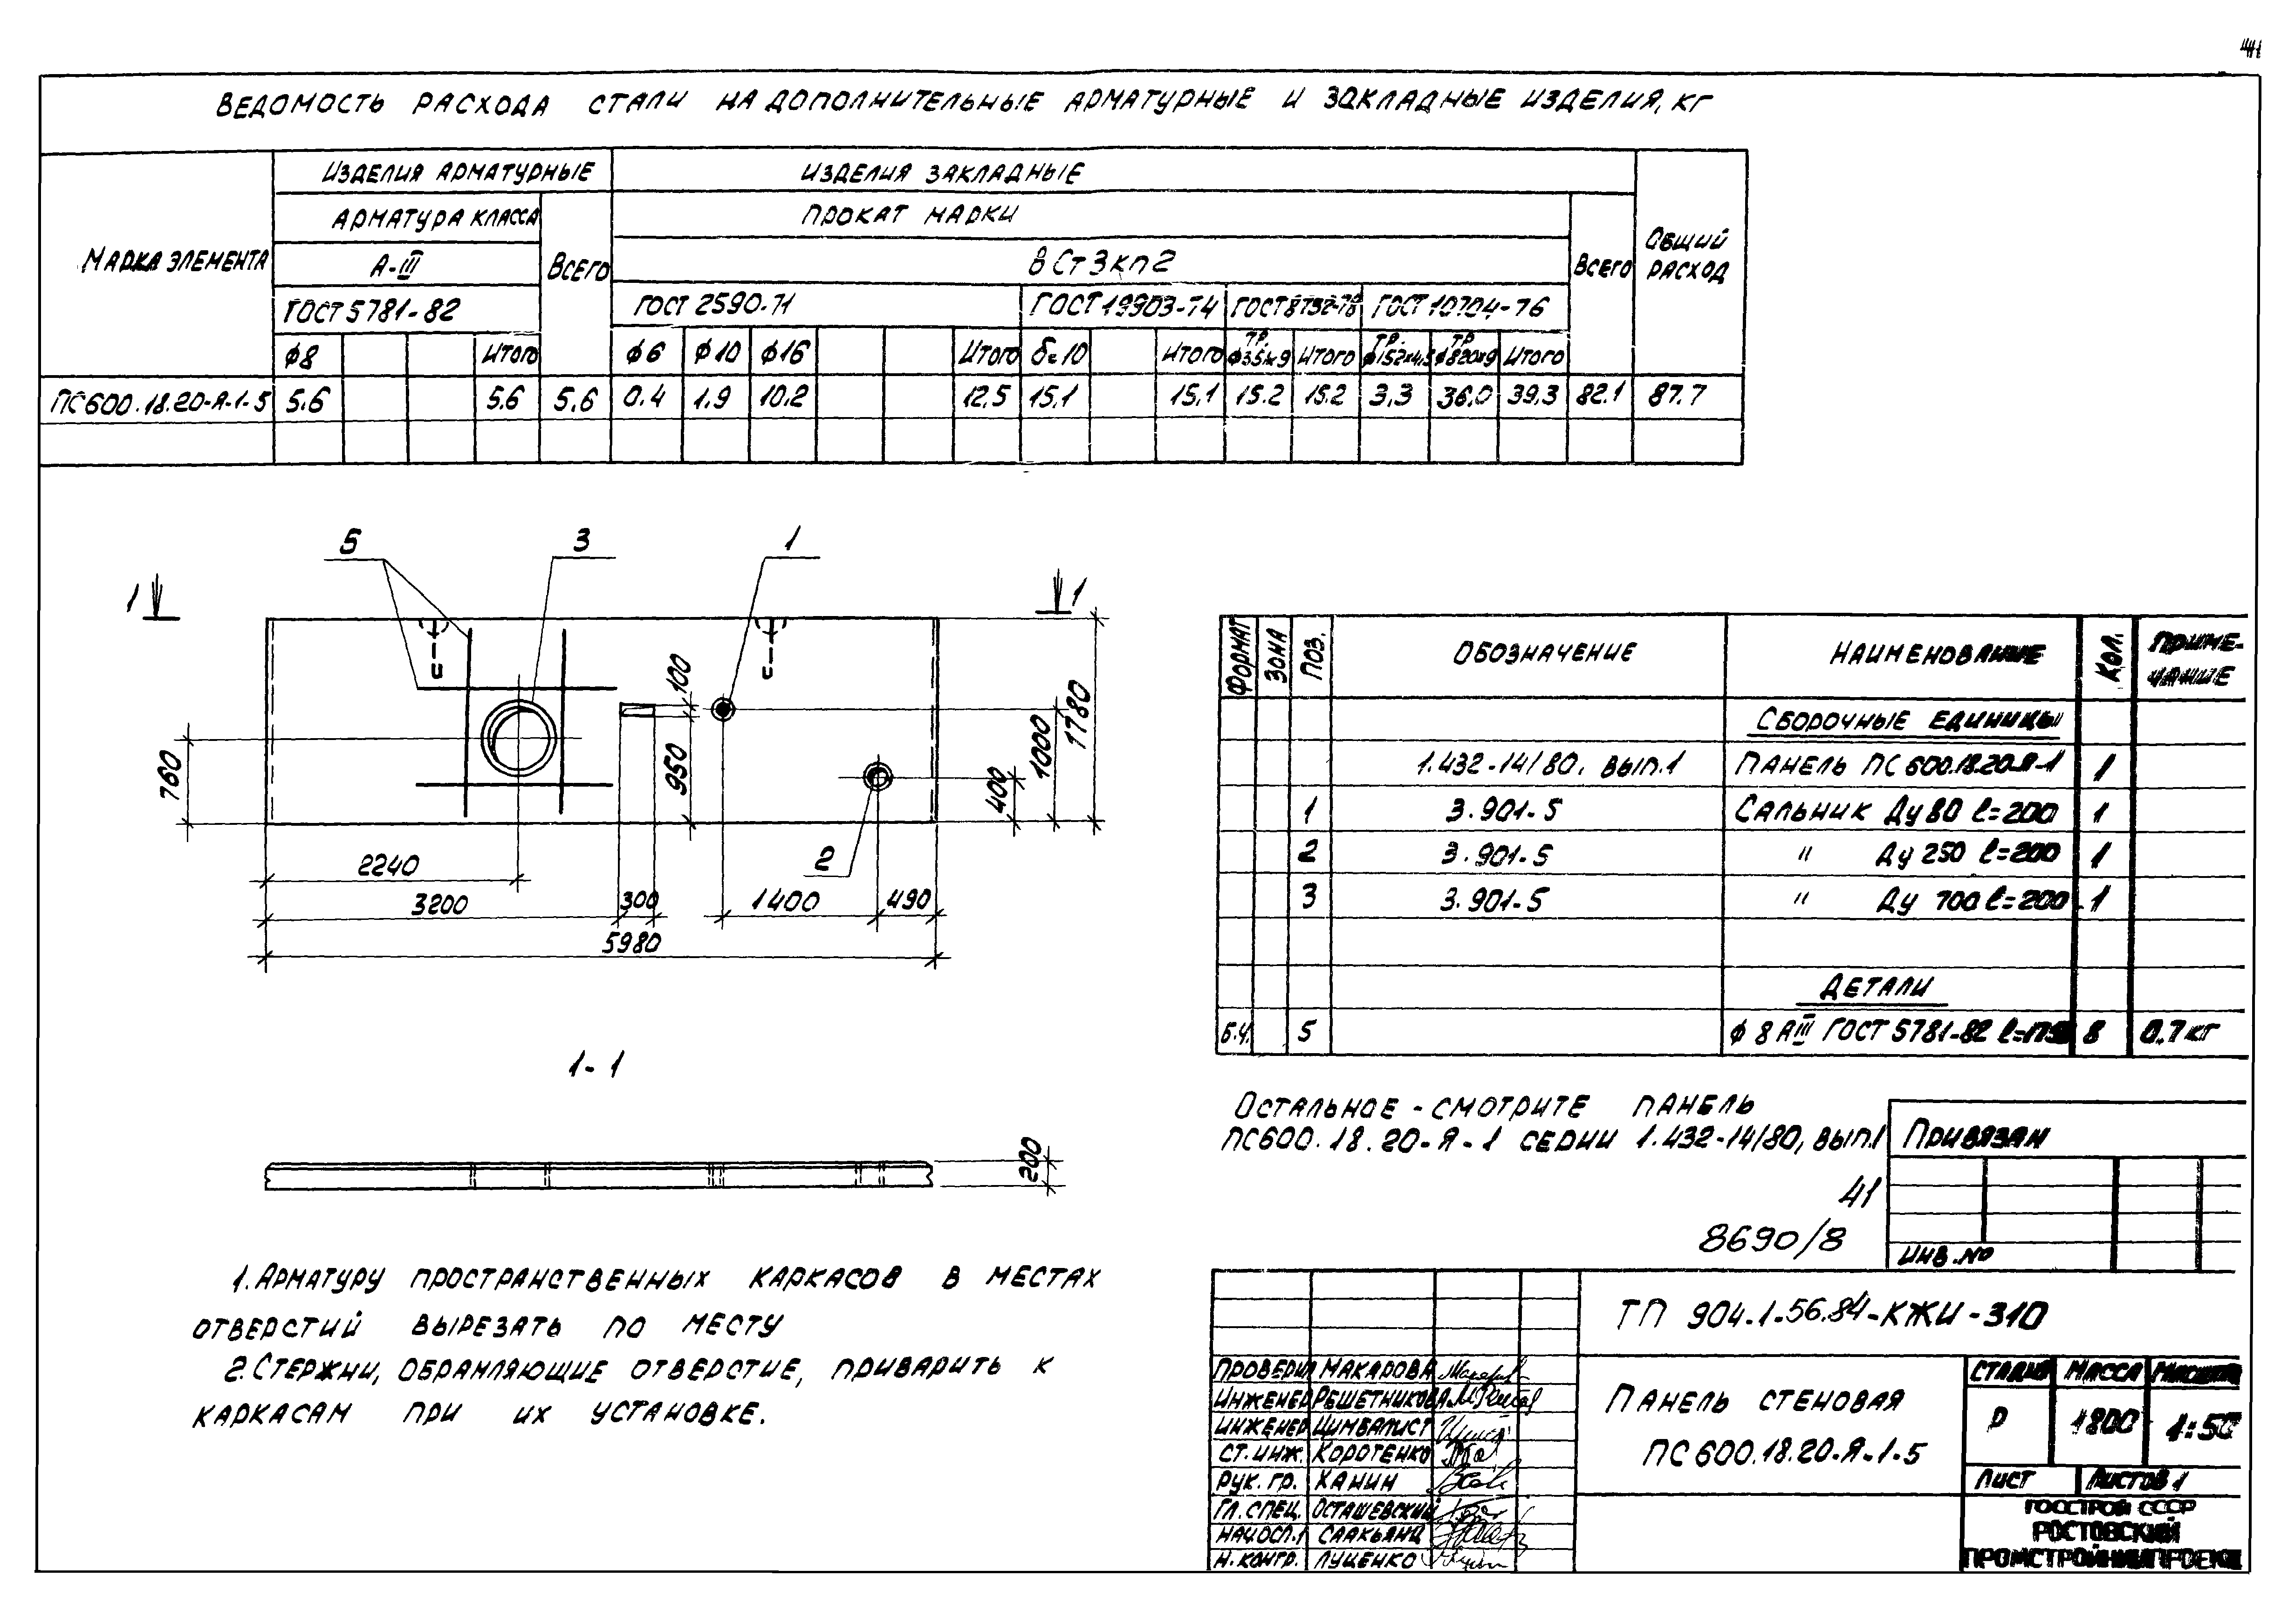 ВЕДОМОСТЬ РАСХОДА СТАЛИ НА ДОПОЛНИТЕЛЬНЫЕ АРМАТУРНЫЕ И ЗАКЛАДНЫЕ ИЗДЕЛИЯ, КГ
МАРКА ЭЛЕМЕНТА
ИЗДЕЛИЯ АРМАТУРНЫЕ
ИЗДЕЛИЯ ЗАКЛАДНЫЕ
ОБЩИЙ РАСХОД
АРМАТУРА КЛАССА
ВСЕГО
ПРОКАТ МАРКИ
ВСЕГО
А-III
ВСт3кп2
ГОСТ 5781-82
ГОСТ 2590-71
ГОСТ 19903-74
ГОСТ 8732-78
ГОСТ 10704-76
ф8 ИТОГО ф6 ф10 ф16 ИТОГО δ=10 ИТОГО ТР. ИТОГО ТР. ф152х4,5 ТР ф820х9 ИТОГО
ПС600.18.20-Я-1-5 5.6 5.6 5.6 0.4 1.9 10.2 12.5 15.1 15.1 15.2 15.2 3.3 36.0 39.3 82.1 87.7
5 3 1
1 1
100
950
760
400
1000
1780
2
2240
3200 300 1400 490
5980
1-1
200
ФОРМАТ ЗОНА ПОЗ. ОБОЗНАЧЕНИЕ НАИМЕНОВАНИЕ КОЛ. ПРИМЕ-
ЧАНИЕ
СБОРОЧНЫЕ ЕДИНИЦЫ
1.432-14/80, ВЫП.1 ПАНЕЛЬ ПС600.18.20-Я-1 1
1 3.901-5 САЛЬНИК Ду 80 ℓ=200 1
2 3.901-5 " Ду 250 ℓ=200 1
3 3.901-5 " Ду 700 ℓ=200 1
ДЕТАЛИ
Б.Ч. 5 ф 8 АIII ГОСТ 5781-82 8 0.7 кг
ОСТАЛЬНОЕ - СМОТРИТЕ ПАНЕЛЬ
ПС600.18.20-Я-1 СЕРИИ 1.432-14/80, ВЫП.1
ПРИВЯЗАН
41
8690/8
ИНВ. №
1. АРМАТУРУ ПРОСТРАНСТВЕННЫХ КАРКАСОВ В МЕСТАХ
ОТВЕРСТИЙ ВЫРЕЗАТЬ ПО МЕСТУ
2. СТЕРЖНИ, ОБРАМЛЯЮЩИЕ ОТВЕРСТИЕ, ПРИВАРИТЬ К
КАРКАСАМ ПРИ ИХ УСТАНОВКЕ.
ТП 904-1-56.84-КЖИ-310
ПРОВЕРИЛ МАКАРОВА
ИНЖЕНЕР РЕШЕТНИКОВА
ИНЖЕНЕР ЦИМБАЛИСТ
СТ. ИНЖ. КОРОТЕНКО
РУК. ГР. ХАНИН
ГЛ. СПЕЦ. ОСТАШЕВСКИЙ
НАЧ.ОСП.1 СААКЬЯНЦ
Н. КОНТР. ЛУЦЕНКО
ПАНЕЛЬ СТЕНОВАЯ
ПС600.18.20-Я-1-5
СТАДИЯ МАССА МАСШТАБ
Р 1800 1:50
ЛИСТ ЛИСТОВ 1
ГОССТРОЙ СССР
РОСТОВСКИЙ
ПРОМСТРОЙНИИПРОЕКТ